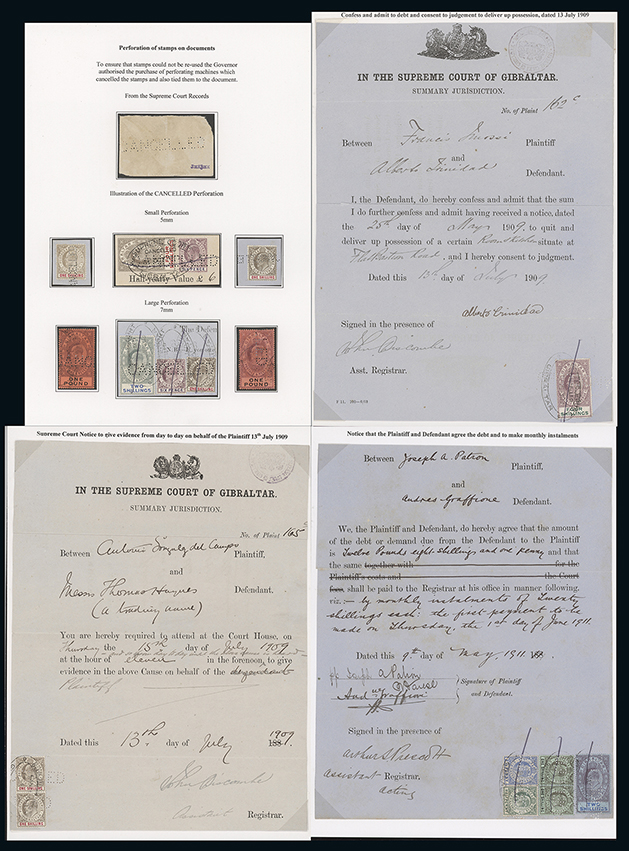 Perforation of stamps on documents
To ensure that stamps could not be re-used the Governor
authorised the purchase of perforating machines which
cancelled the stamps and also tied them to the document.
From the Supreme Court Records
CANCELLED
Illustration of the CANCELLED Perforation
Small Perforation
5mm
Half-yearly Value £ 6
Large Perforation
7mm
ONE POUND
TWO SHILLINGS
SIX PENCE
ONE SHILLING
ONE POUND
Confess and admit to debt and consent to judgement to deliver up possession, dated 13 July 1909
IN THE SUPREME COURT OF GIBRALTAR.
SUMMARY JURISDICTION.
No. of Plaint 162 c
Between Francis Plaintiff
and
Alberto Trinidad Defendant.
I, the Defendant, do hereby confess and admit that the sum
I do further confess and admit having received a notice, dated
the 25th day of May 1909, to quit and
deliver up possession of a certain situate at
Road, and I hereby consent to judgment.
Dated this 13th day of July 1909
Alberto Trinidad
Signed in the presence of
John
Asst. Registrar.
FOUR SHILLINGS
Supreme Court Notice to give evidence from day to day on behalf of the Plaintiff 13th July 1909
IN THE SUPREME COURT OF GIBRALTAR.
SUMMARY JURISDICTION.
No. of Plaint 165
Between Antonio Gonzalez del Campo Plaintiff,
and
Messrs Thomas Haynes Defendant.
(a trading name)
You are hereby required to attend at the Court House, on
Thursday the 15th day of July 1909
at the hour of eleven in the forenoon, to give
evidence in the above Cause on behalf of the defendant
Plaintiff
Dated this 13th day of July 1909
188 .
John
Assistant Registrar.
ONE SHILLING
ONE SHILLING
Notice that the Plaintiff and Defendant agree the debt and to make monthly instalments
Between Joseph A. Patron Plaintiff,
and
Andres Graffione Defendant.
We, the Plaintiff and Defendant, do hereby agree that the amount
of the debt or demand due from the Defendant to the Plaintiff
is Twelve Pounds eight shillings and one penny and that
the same together with for the
Plaintiff's costs and the Court
fees, shall be paid to the Registrar at his office in manner following,
viz:- by monthly instalments of Twenty
shillings each: the first payment to be
made on Thursday, the 1st day of June 1911.
Dated this 9th day of May, 1911
A Patron
Signature of Plaintiff
and Defendant.
And Graffione
Signed in the presence of
Arthur S Prescott
Assistant Registrar.
Acting
TWO SHILLINGS